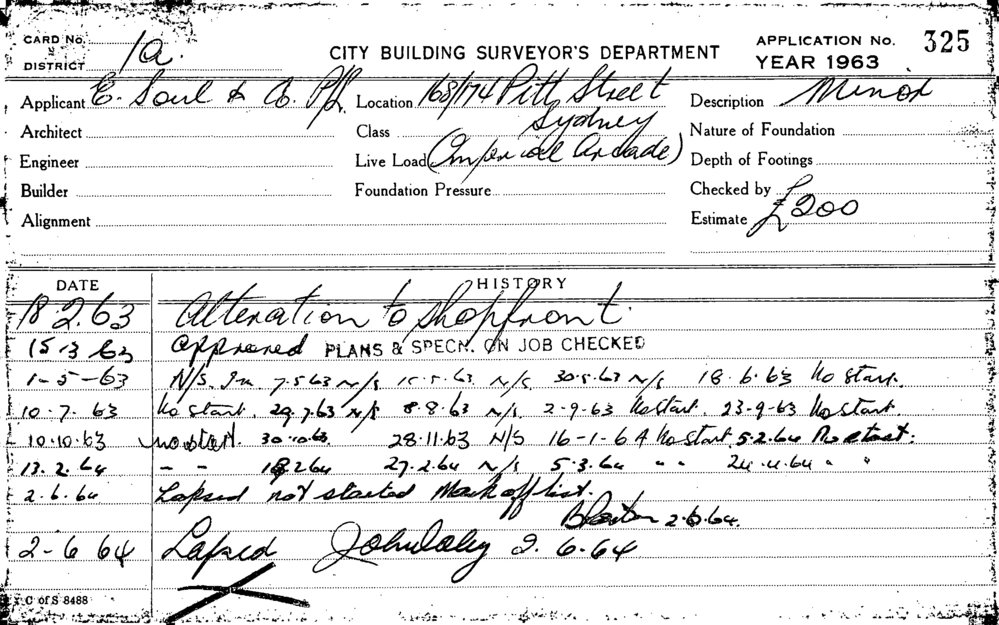 CARD No. 1a. CITY BUILDING SURVEYOR'S DEPARTMENT APPLICATION No. 325
DISTRICT YEAR 1963
Applicant E. Soul & Co. P/L Location 168/174 Pitt Street Description Minor
Architect Class Sydney Nature of Foundation
Engineer Live Load (Imperial Arcade) Depth of Footings
Builder Foundation Pressure Checked by
Alignment Estimate £200
DATE HISTORY
18.2.63 Alteration to shopfront.
15.3.63 approved PLANS & SPECN. ON JOB CHECKED
1-5-63 N/S. 7.5.63 N/S 15.5.63 N/S. 30.5.63 N/S 18.6.63 No start.
10.7.63 No start. 29.7.63 N/S 8.8.63 N/S. 2-9-63 No start. 23-9-63 No start.
10.10.63 no start. 30.10.63. 28.11.63 N/S 16-1-64 No start 5.2.64 No start.
13.2.64 - - 18.2.64 27.2.64 N/S 5.3.64 " " 24.4.64 " "
2.6.64 Lapsed not started Mark off list.
2.6.64.
2-6 64 Lapsed John Daley 2.6.64
C of S 8488